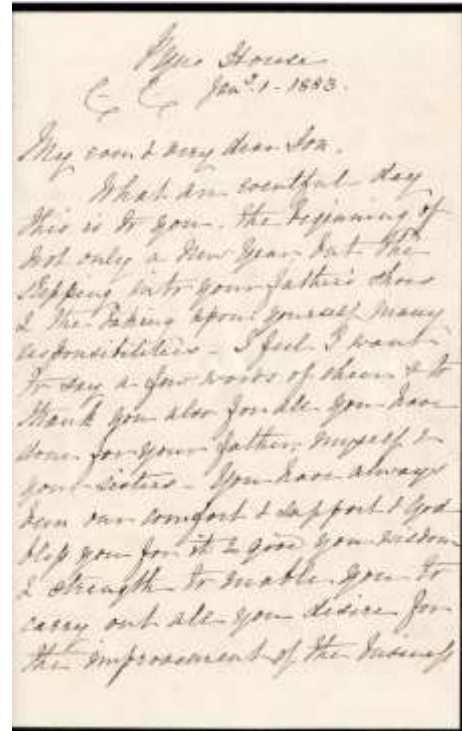 House
Jan'y. 1 - 1883.
My own & very dear Son.
What an eventful day
this is to you. the beginning of
not only a New Year but the
stepping into your father's shoes
& the taking upon yourself many
responsibilities - I feel I want
to say a few words of cheer & to
thank you also for all you have
done for your father, myself &
your sisters - You have always
been our comfort & support & God
bless you for it & give you wisdom
& strength to enable you to
carry out all you desire for
the improvement of the business